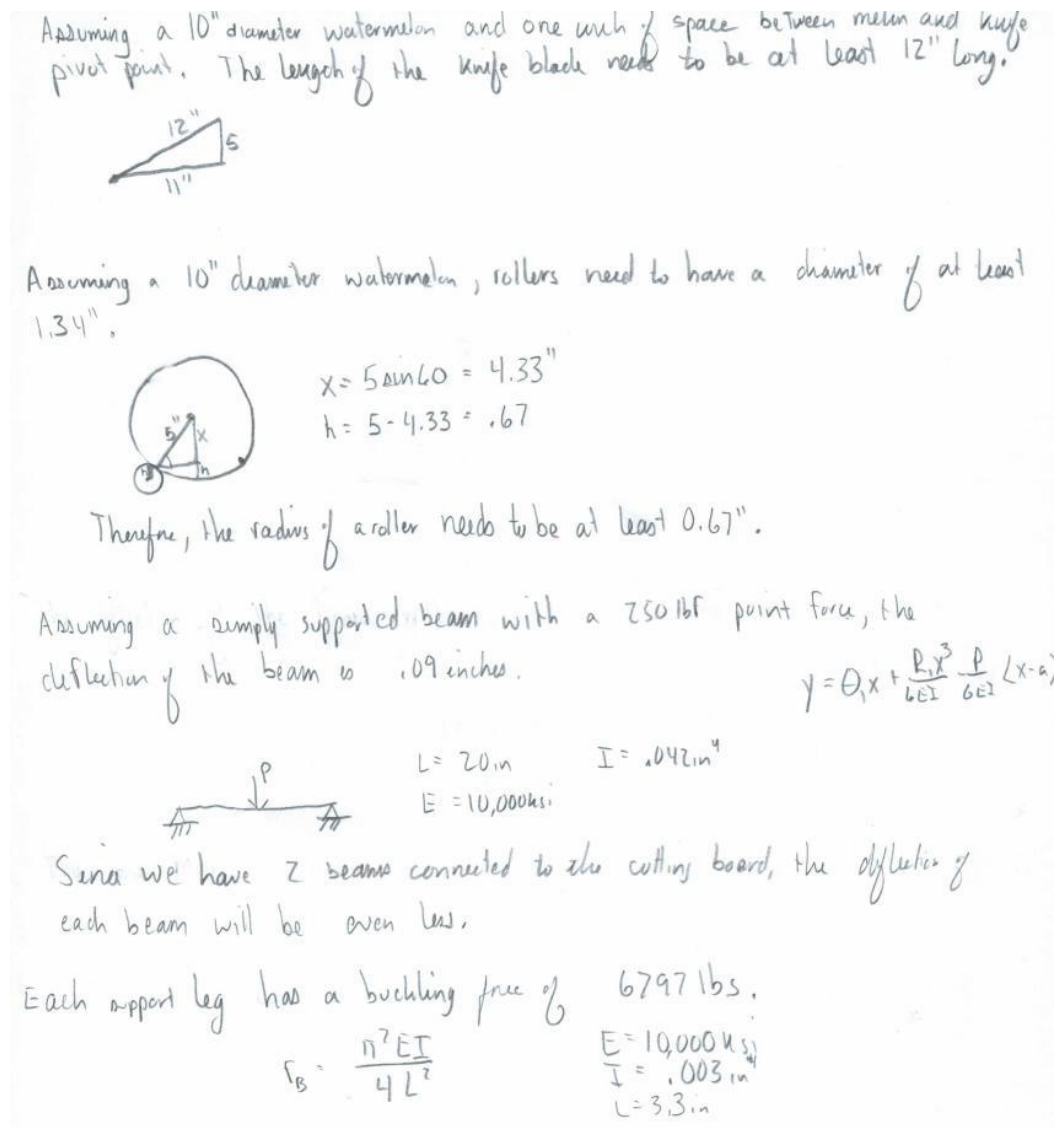 Assuming a 10" diameter watermelon and one inch of space between melon and knife
pivot point. The length of the knife blade needs to be at least 12" long.
12"
5
11"
Assuming a 10" diameter watermelon, rollers need to have a diameter of at least
1.34".
x = 5 sin 60 = 4.33"
h = 5 - 4.33 = .67
5"
x
h
Therefore, the radius of a roller needs to be at least 0.67".
Assuming a simply supported beam with a 250 lbf point force, the
deflection of the beam is .09 inches.
y = θ₁x + R₁x³/6EI - P/6EI <x-a>
P
L = 20in I = .042in⁴
E = 10,000ksi
Since we have 2 beams connected to the cutting board, the deflection of
each beam will be even less.
Each support leg has a buckling force of 6797 lbs.
F_B = π²EI / 4L²
E = 10,000 ksi
I = .003in⁴
L = 3.3in